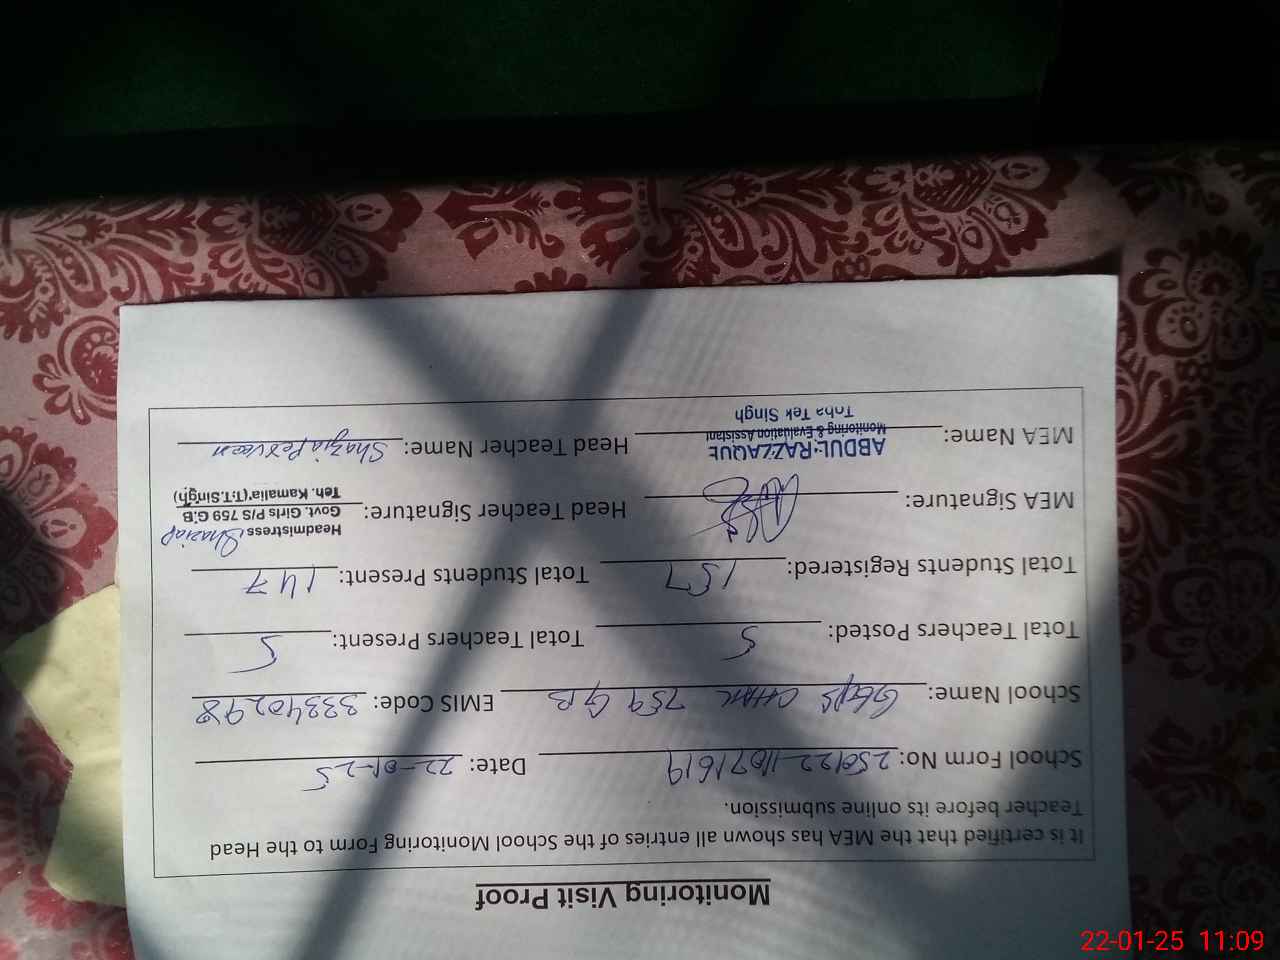 Monitoring Visit Proof
It is certified that the MEA has shown all entries of the School Monitoring Form to the Head
Teacher before its online submission.
School Form No: 250122-11071619 Date: 22-01-25
School Name: GGPS CHAK 759 GB EMIS Code: 33340298
Total Teachers Posted: 5 Total Teachers Present: 5
Total Students Registered: 157 Total Students Present: 147
MEA Signature: Head Teacher Signature: Shazia P
Headmistress
Govt. Girls P/S 759 G.B
Teh. Kamalia (T.T.Singh)
MEA Name: ABDUL RAZZAQUE Head Teacher Name: Shazia Parveen
Monitoring & Evaluation Assistant
Toba Tek Singh
22-01-25 11:09